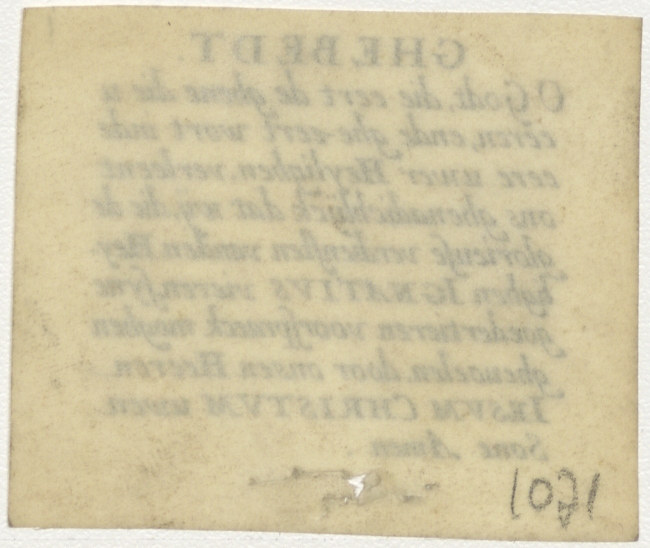 GHEBEDT.
O Godt, die eert de ghene die u
eeren, ende ghe-eert wort inde
eere uwer Heylighen, verleent
ons ghenadichlijck dat wy, die de
glorieuse verdiensten vanden Hey
lighen IGNATIVS vieren, syne
goedertieren voorspraeck moghen
ghevoelen, door onsen Heeren
IESVM CHRISTVM uwen
Sone Amen